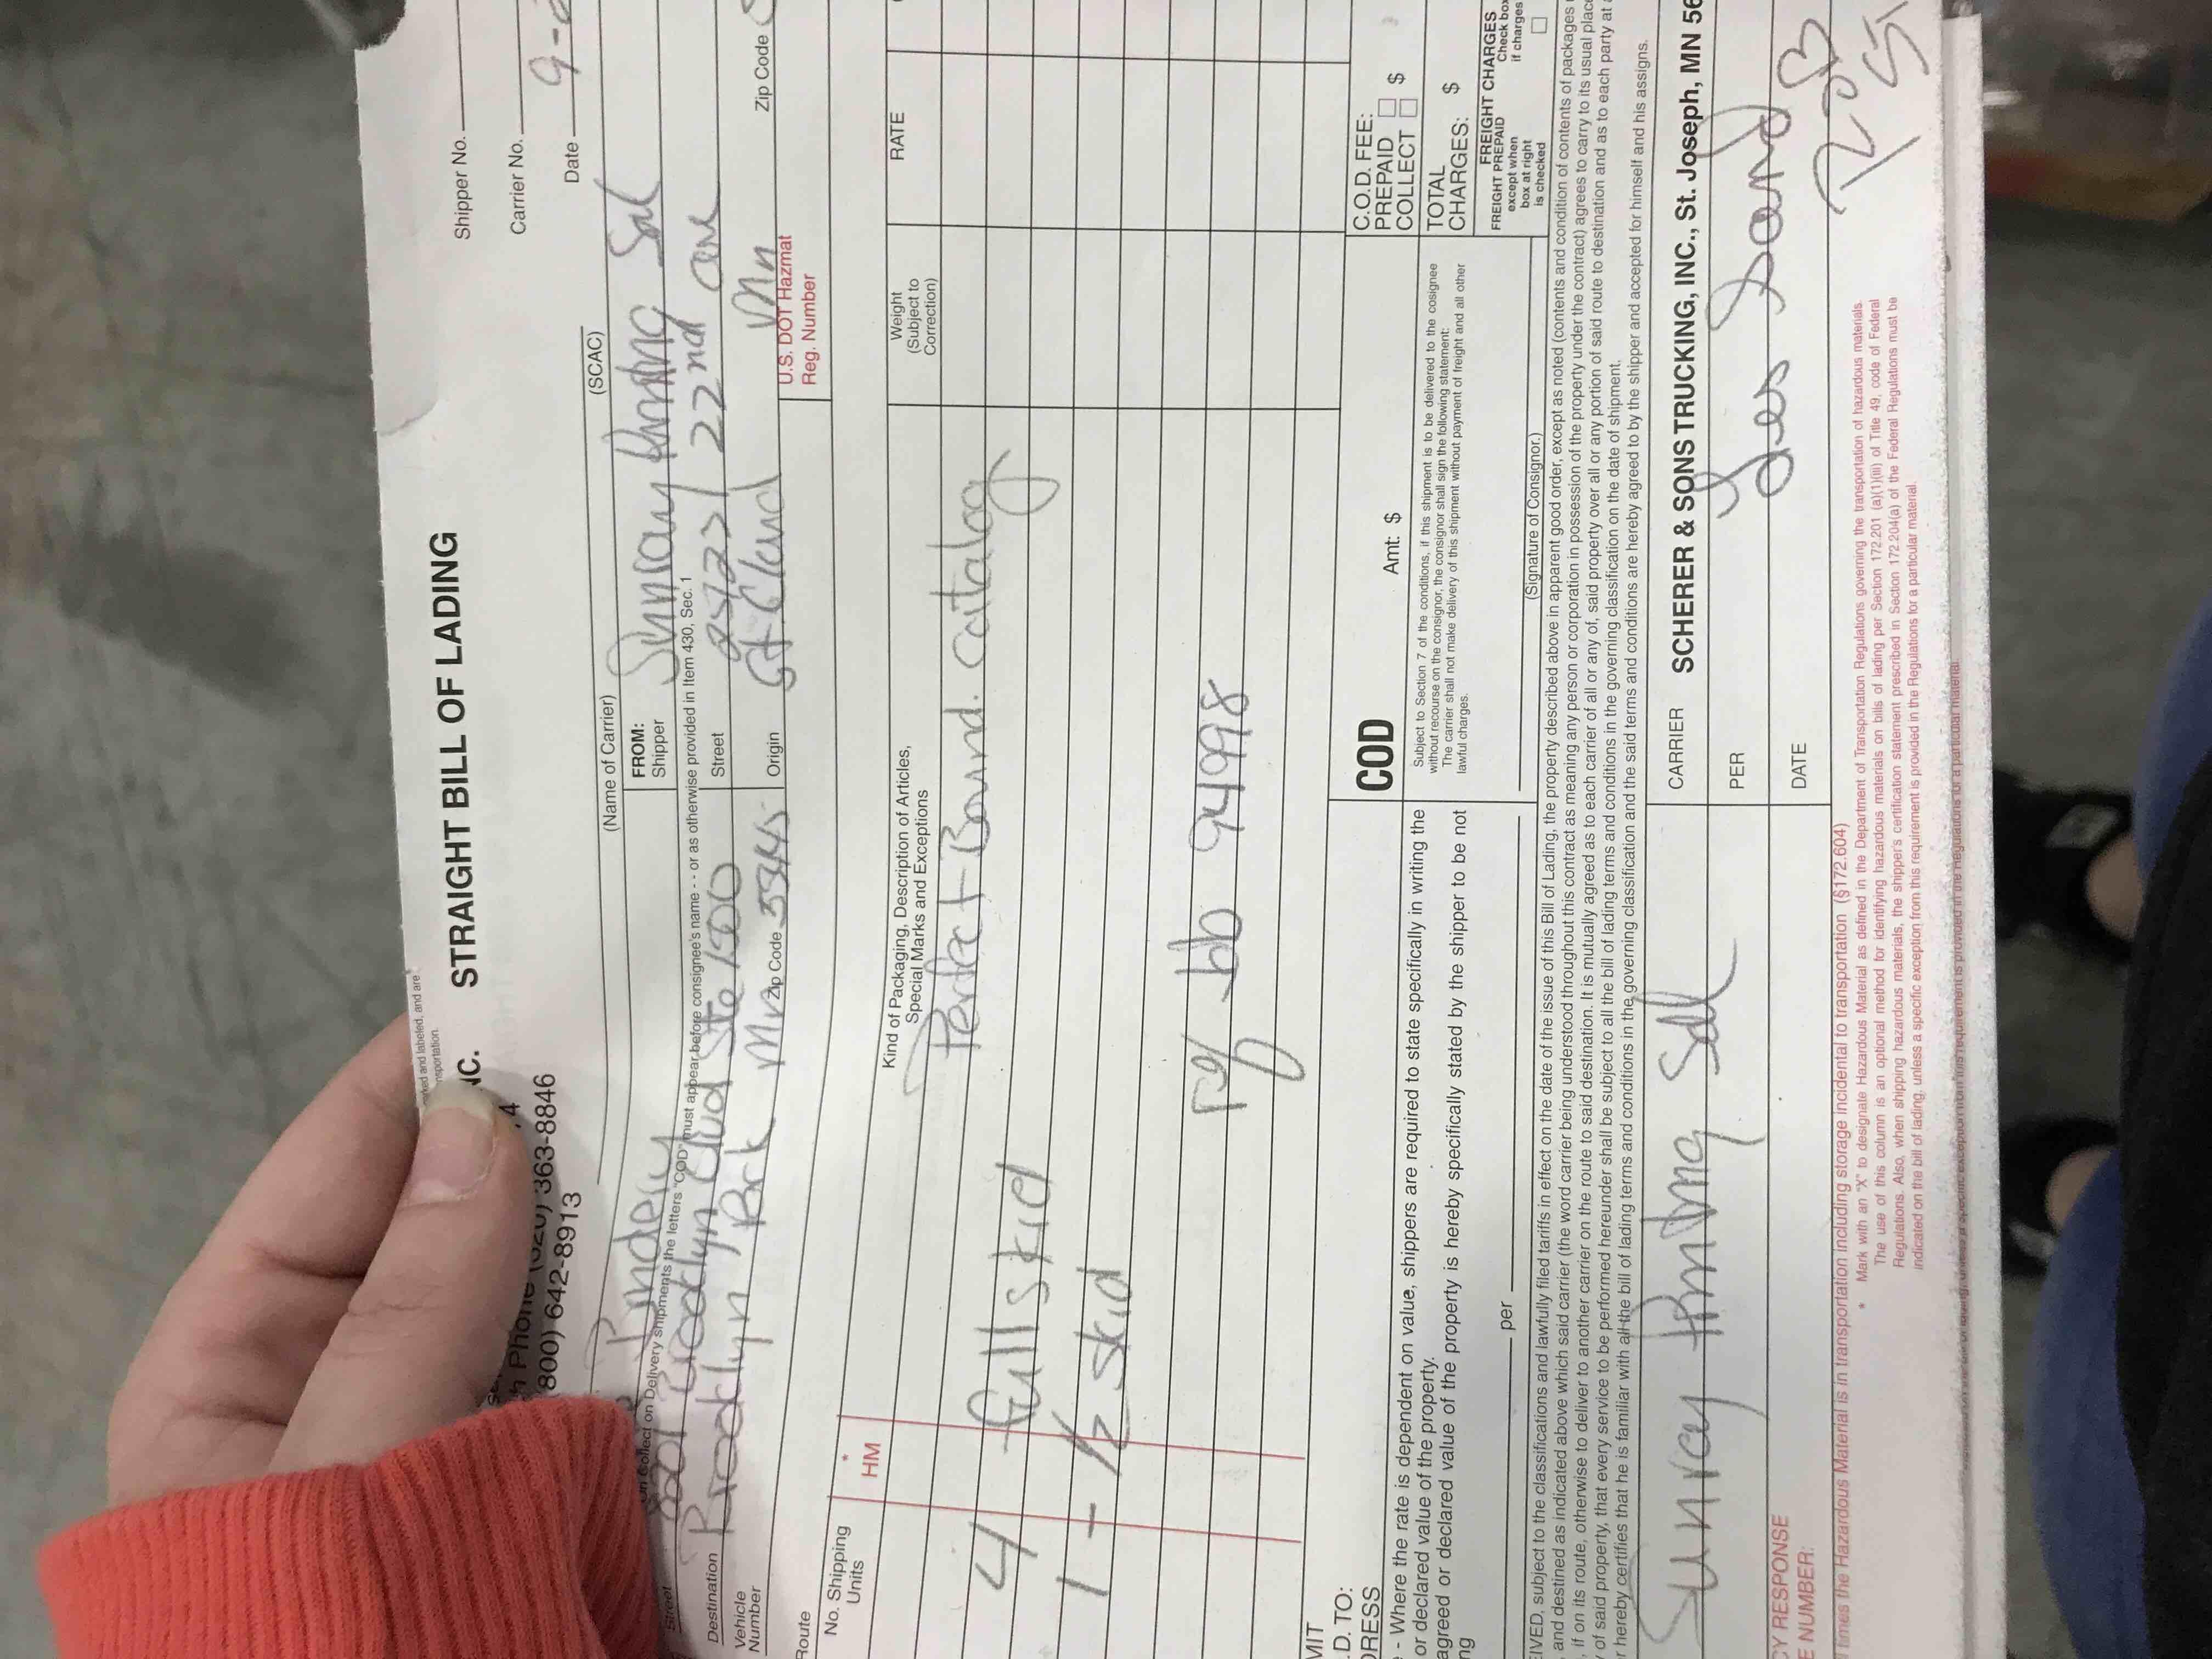 ked and labeled, and are
nsportation.
NC. STRAIGHT BILL OF LADING
Shipper No.
363-8846
Carrier No.
800) 642-8913
Date 9-
(Name of Carrier) (SCAC)
FROM:
Shipper Sunray Printing Sol
on Collect on Delivery shipments, the letters "COD" must appear before consignee's name - - or as otherwise provided in Item 430, Sec. 1
Street Brooklyn Blvd Ste 1300
Street 22nd ave
Zip Code
Destination Brooklyn Park Mn Zip Code
Origin St Cloud Mn
Vehicle
Number
U.S. DOT Hazmat
Reg. Number
Route
No. Shipping
Units
*
HM
Kind of Packaging, Description of Articles,
Special Marks and Exceptions
Weight
(Subject to
Correction)
RATE
Perfect Bound Catalog
4 full skid
1 - 1/2 skid
Ref Job 94998
MIT
.D. TO:
DRESS
COD Amt: $
C.O.D. FEE:
PREPAID
COLLECT $
- Where the rate is dependent on value, shippers are required to state specifically in writing the
or declared value of the property.
agreed or declared value of the property is hereby specifically stated by the shipper to be not
ng per
Subject to Section 7 of the conditions, if this shipment is to be delivered to the cosignee
without recourse on the consignor, the consignor shall sign the following statement:
The carrier shall not make delivery of this shipment without payment of freight and all other
lawful charges.
(Signature of Consignor.)
TOTAL
CHARGES: $
FREIGHT CHARGES
FREIGHT PREPAID
except when
box at right
is checked
Check box
if charges
IVED, subject to the classifications and lawfully filed tariffs in effect on the date of the issue of this Bill of Lading, the property described above in apparent good order, except as noted (contents and condition of contents of packages
and destined as indicated above which said carrier (the word carrier being understood throughout this contract as meaning any person or corporation in possession of the property under the contract) agrees to carry to its usual place
if on its route, otherwise to deliver to another carrier on the route to said destination. It is mutually agreed as to each carrier of all or any of, said property over all or any portion of said route to destination and as to each party at
of said property, that every service to be performed hereunder shall be subject to all the bill of lading terms and conditions in the governing classification on the date of shipment.
r hereby certifies that he is familiar with all the bill of lading terms and conditions in the governing classification and the said terms and conditions are hereby agreed to by the shipper and accepted for himself and his assigns.
Sunray Printing Sol
CARRIER SCHERER & SONS TRUCKING, INC., St. Joseph, MN 56
PER
CY RESPONSE
E NUMBER:
DATE
times the Hazardous Material is in transportation including storage incidental to transportation (§172.604)
* Mark with an "X" to designate Hazardous Material as defined in the Department of Transportation Regulations governing the transportation of hazardous materials.
The use of this column is an optional method for identifying hazardous materials on bills of lading per Section 172.201 (a)(1)(iii) of Title 49, code of Federal
Regulations. Also, when shipping hazardous materials, the shipper's certification statement prescribed in Section 172.204(a) of the Federal Regulations must be
indicated on the bill of lading, unless a specific exception from this requirement is provided in the Regulations for a particular material.